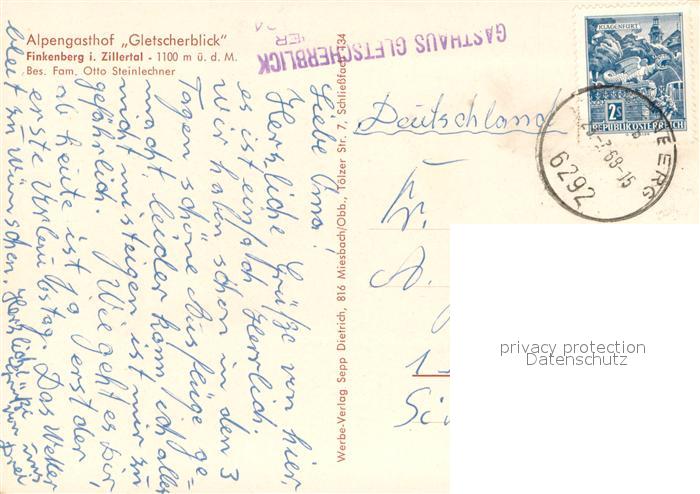 Alpengasthof „Gletscherblick"
Finkenberg i. Zillertal - 1100 m ü. d. M.
Bes. Fam. Otto Steinlechner
GASTHAUS GLETSCHERBLICK
Liebe Oma!
Herrliche Grüße von hier,
es ist einfach herrlich.
Wir haben schon in den 3
Tagen schöne Ausflüge ge-
macht, leider kann ich alles
nicht mitsteigen ist mir zu
gefährlich. Wie geht es Dir
ab heute ist ja erst der
erste Urlaubstag. Das Wetter
bleibt zu wünschen. Herzliche
Werbe-Verlag Sepp Dietrich, 816 Miesbach/Obb., Tölzer Str. 7, Schließfach 134
KLAGENFURT
2S
REPUBLIK ÖSTERREICH
68-15
6292
Deutschland
Fr.
A.
1
privacy protection
Datenschutz